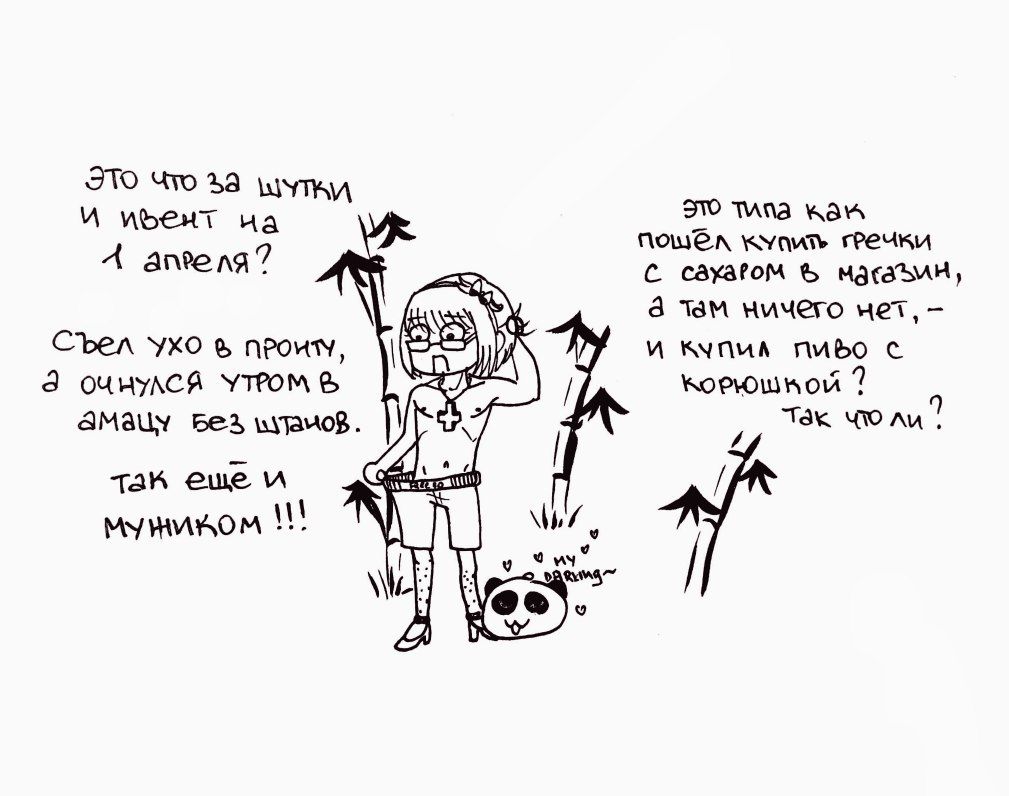 Это что за шутки
и ивент на
1 апреля?
Съел ухо в пронту,
а очнулся утром в
амацу без штанов.
Так ещё и
мужиком!!!
Это типа как
пошёл купить гречки
с сахаром в магазин,
а там ничего нет,–
и купил пиво с
корюшкой?
Так что ли?
MY
DARLING~